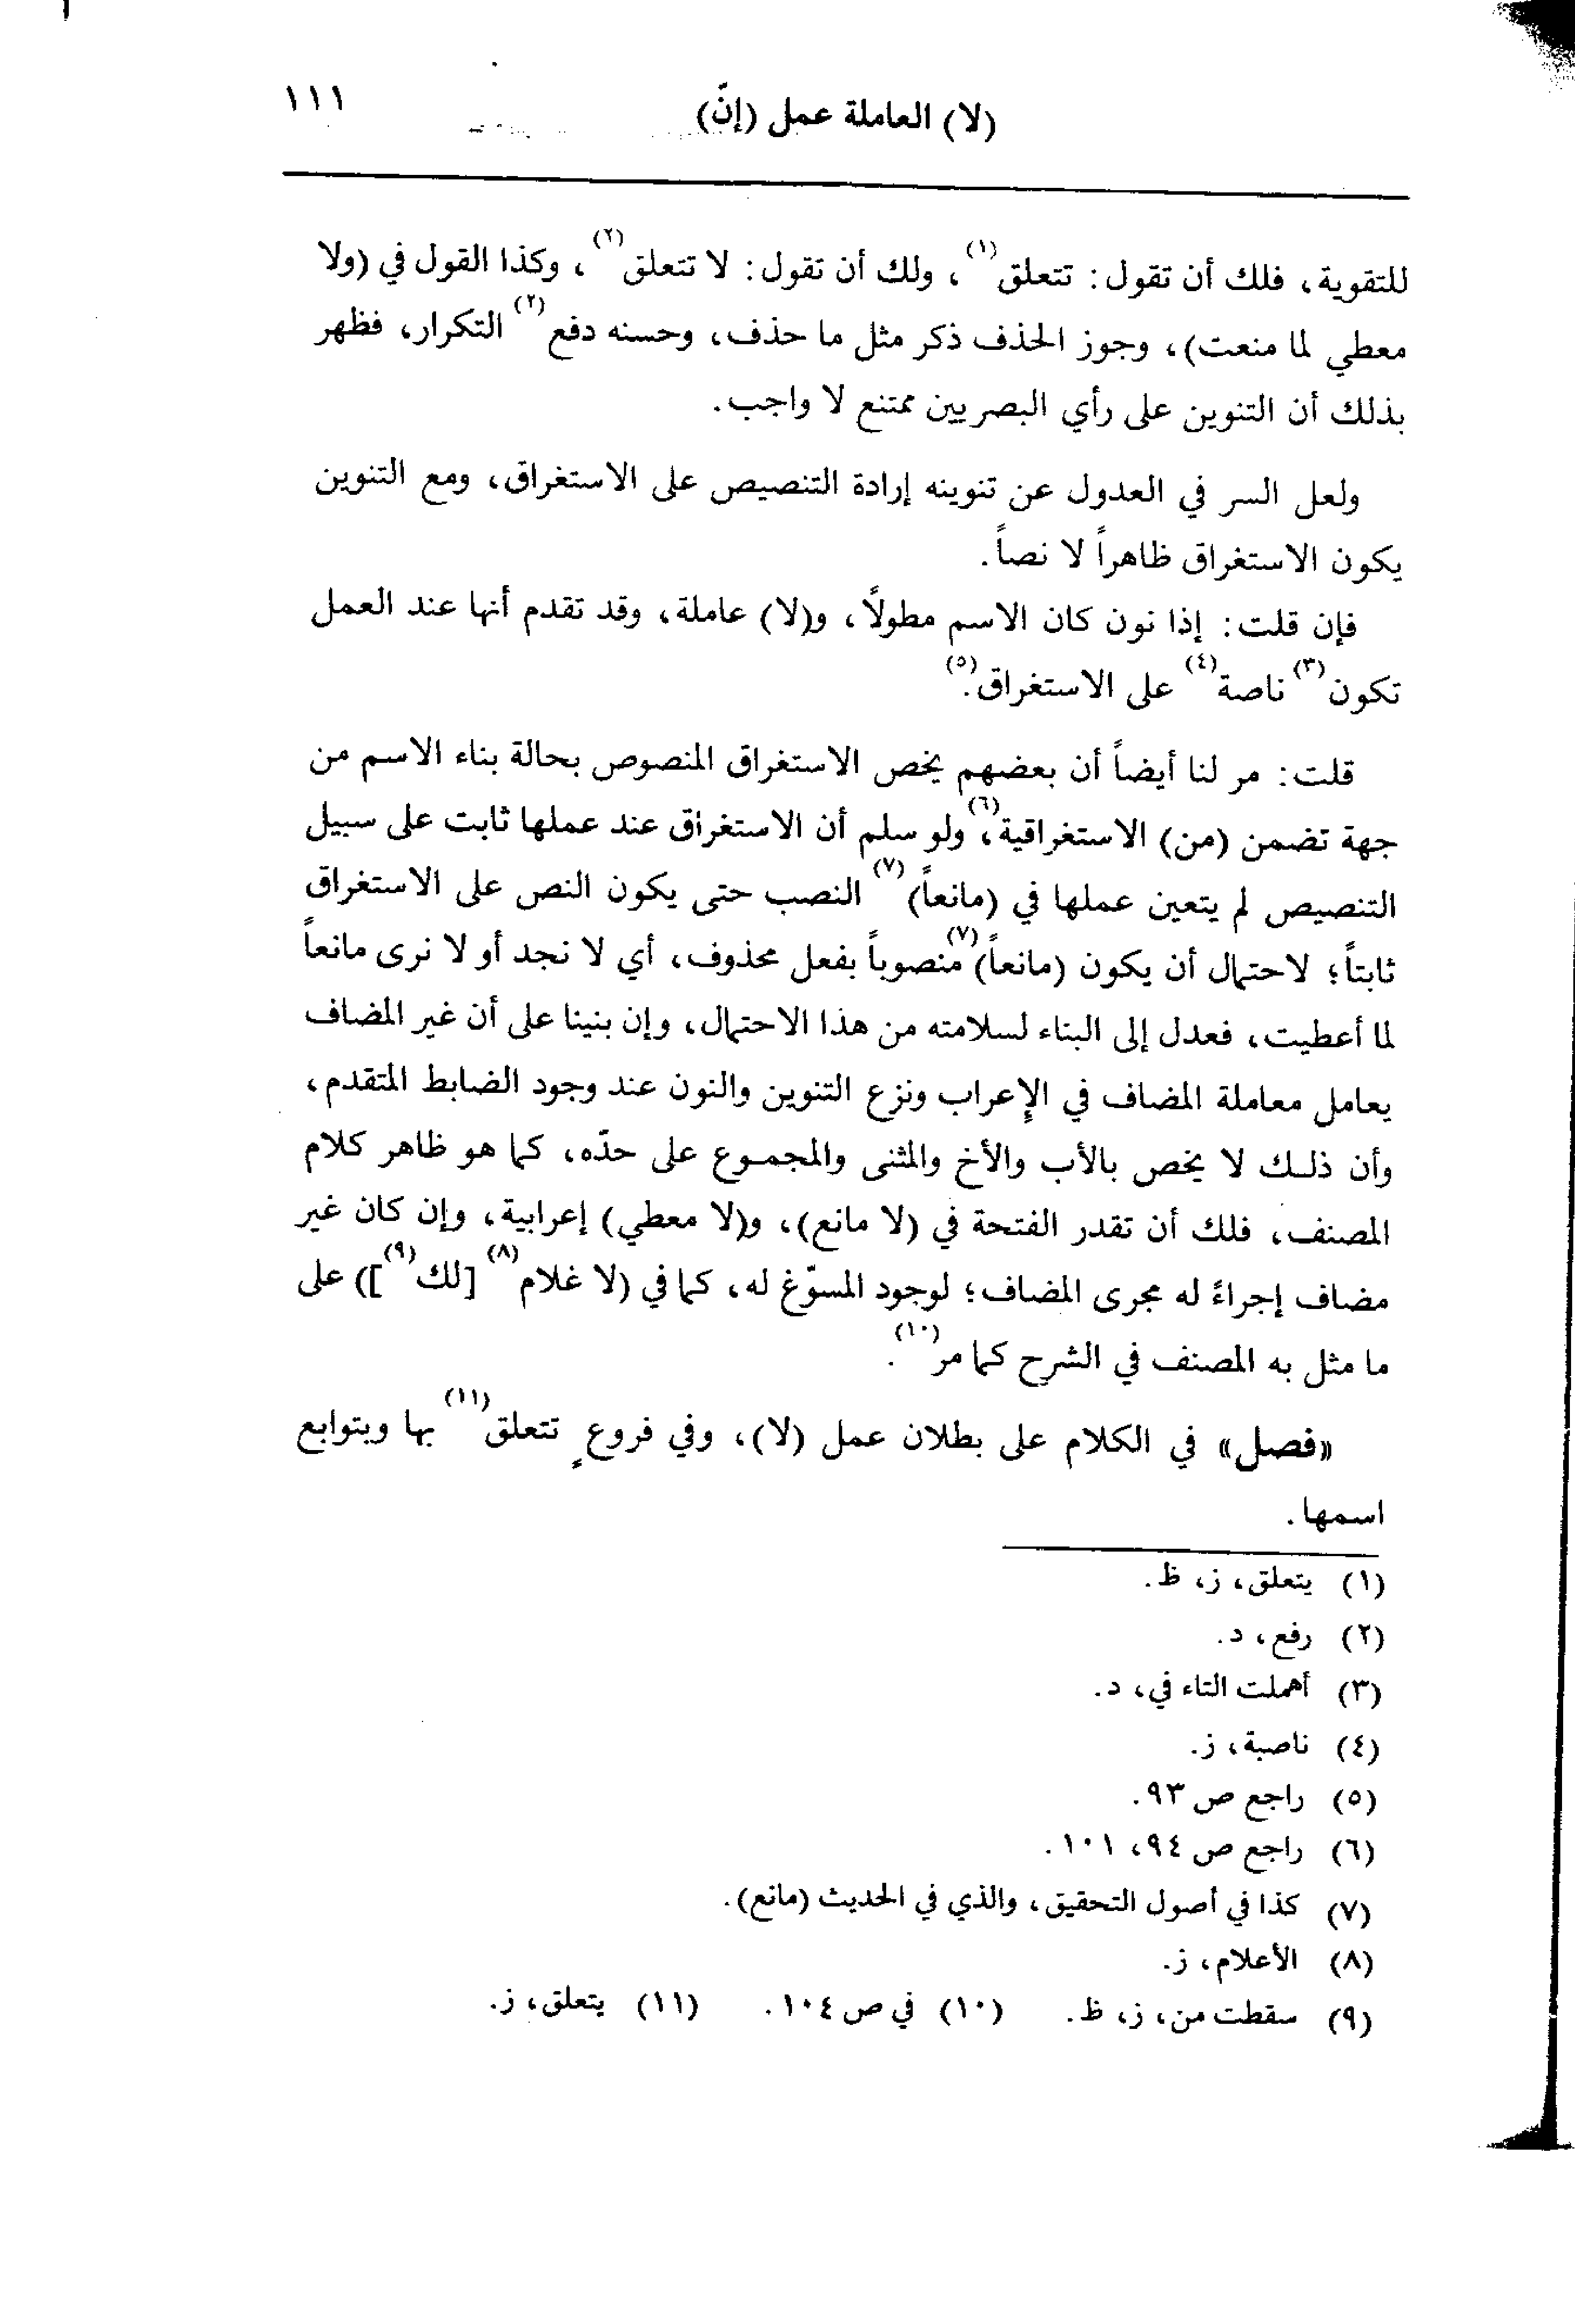 (لا) العاملة عمل (إنّ)
١١١
للتقوية، فلك أن تقول: تتعلق(١)، ولك أن تقول: لا تتعلق(٢)، وكذا القول في (ولا
معطي لما منعت)، وجوز الحذف ذكر مثل ما حذف، وحسنه دفع(٢) التكرار، فظهر
بذلك أن التنوين على رأي البصريين ممتنع لا واجب.
ولعل السر في العدول عن تنوينه إرادة التنصيص على الاستغراق، ومع التنوين
يكون الاستغراق ظاهراً لا نصاً.
فإن قلت: إذا نون كان الاسم مطولاً، و(لا) عاملة، وقد تقدم أنها عند العمل
تكون(٣) ناصة(٤) على الاستغراق(٥).
قلت: مر لنا أيضاً أن بعضهم يخص الاستغراق المنصوص بحالة بناء الاسم من
جهة تضمن (من) الاستغراقية(٦)، ولو سلم أن الاستغراق عند عملها ثابت على سبيل
التنصيص لم يتعين عملها في (مانعاً)(٧) النصب حتى يكون النص على الاستغراق
ثابتاً؛ لاحتمال أن يكون (مانعاً)(٧) منصوباً بفعل محذوف، أي لا نجد أو لا نرى مانعاً
لما أعطيت، فعدل إلى البناء لسلامته من هذا الاحتمال، وإن بنينا على أن غير المضاف
يعامل معاملة المضاف في الإعراب ونزع التنوين والنون عند وجود الضابط المتقدم،
وأن ذلك لا يخص بالأب والأخ والمثنى والمجموع على حدّه، كما هو ظاهر كلام
المصنف، فلك أن تقدر الفتحة في (لا مانع)، و(لا معطي) إعرابية، وإن كان غير
مضاف إجراءً له مجرى المضاف؛ لوجود المسوّغ له، كما في (لا غلام(٨) [لك(٩)]) على
ما مثل به المصنف في الشرح كما مر(١٠).
«فصل» في الكلام على بطلان عمل (لا)، وفي فروعٍ تتعلق(١١) بها وبتوابع
اسمها.
(١) يتعلق، ز، ظ.
(٢) رفع، د.
(٣) أهملت التاء في، د.
(٤) ناصبة، ز.
(٥) راجع ص ٩٣.
(٦) راجع ص ٩٤، ١٠١.
(٧) كذا في أصول التحقيق، والذي في الحديث (مانع).
(٨) الأعلام، ز.
(٩) سقطت من، ز، ظ. (١٠) في ص ١٠٤. (١١) يتعلق، ز.